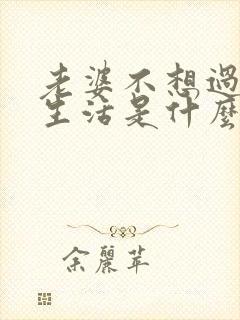 老婆不想過
生活是什麼
余麗苹